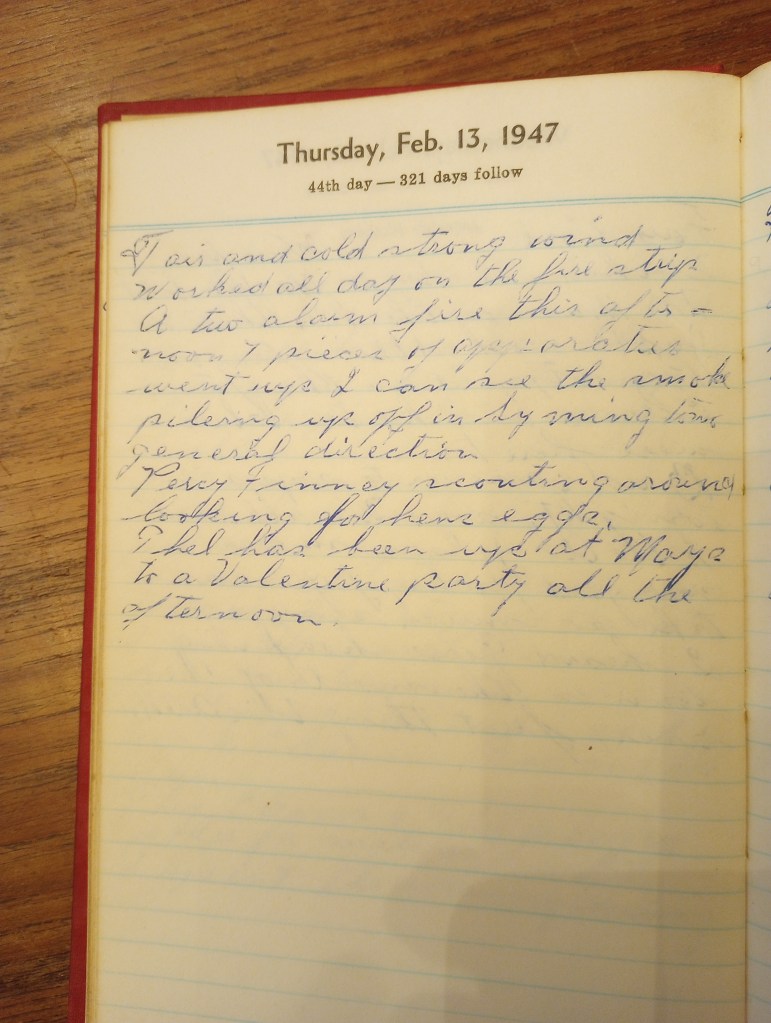 Thursday, Feb. 13, 1947
44th day — 321 days follow
Fair and cold strong wind
Worked all day on the fire strip
A two alarm fire this after-
noon 7 pieces of apparatus
went up I can see the smoke
pilerng up off in Wyming town
general direction
Percy Finney scouting around
looking for hens eggs.
Phel has been up at Marys
to a Valentine party all the
afternoon.